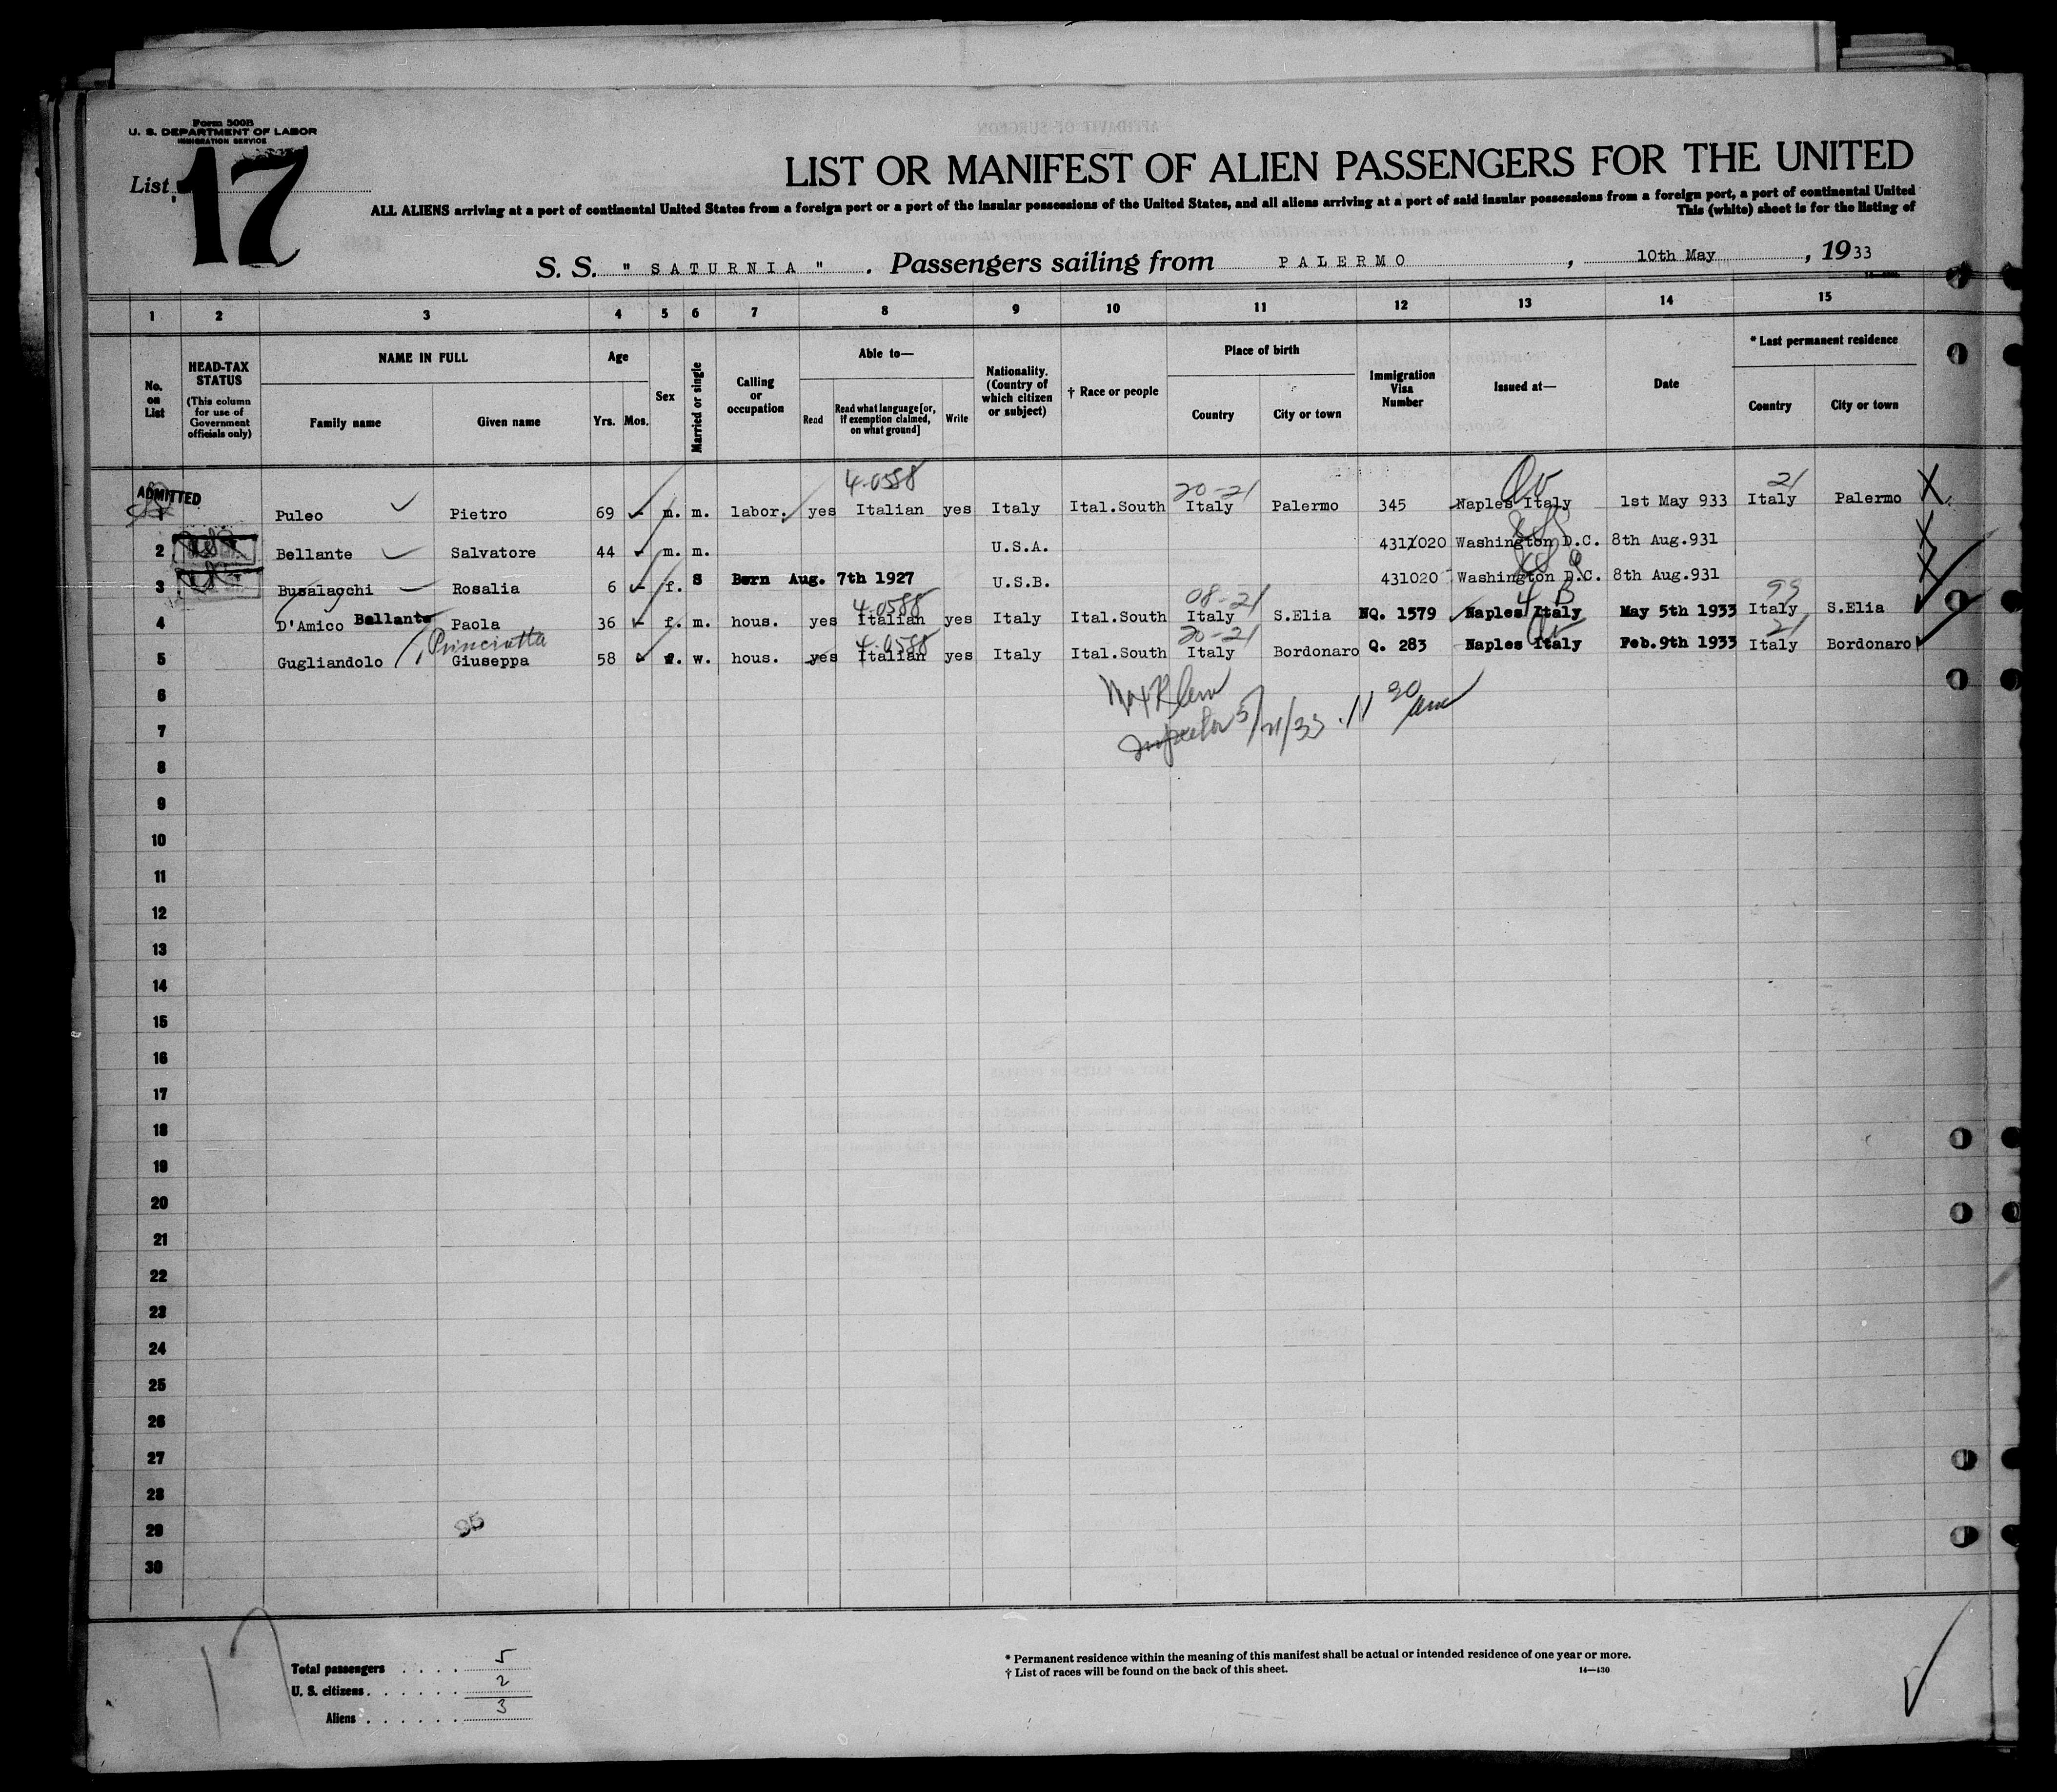 Form 500B
U. S. DEPARTMENT OF LABOR
IMMIGRATION SERVICE
List 17
LIST OR MANIFEST OF ALIEN PASSENGERS FOR THE UNITED
ALL ALIENS arriving at a port of continental United States from a foreign port or a port of the insular possessions of the United States, and all aliens arriving at a port of said insular possessions from a foreign port, a port of continental United
This (white) sheet is for the listing of
S. S. " SATURNIA ". Passengers sailing from PALERMO, 10th May, 1933
1 2 3 4 5 6 7 8 9 10 11 12 13 14 15
No. on List
HEAD-TAX STATUS (This column for use of Government officials only)
NAME IN FULL Family name Given name
Age Yrs. Mos.
Sex
Married or single
Calling or occupation
Able to— Read Read what language [or, if exemption claimed, on what ground] Write
Nationality. (Country of which citizen or subject)
† Race or people
Place of birth Country City or town
Immigration Visa Number
Issued at—
Date
* Last permanent residence Country City or town
4-0588 20-21 21
ADMITTED
1 Puleo Pietro 69 m. m. labor. yes Italian yes Italy Ital.South Italy Palermo 345 Naples Italy 1st May 933 Italy Palermo X
2 Bellante Salvatore 44 m. m. U.S.A. 431020 Washington D.C. 8th Aug.931 X
3 Busalacchi Rosalia 6 f. S Born Aug. 7th 1927 U.S.B. 431020 Washington D.C. 8th Aug.931 X
4-0588 08-21 99
4 D'Amico Bellante Paola 36 f. m. hous. yes Italian yes Italy Ital.South Italy S.Elia NQ. 1579 Naples Italy May 5th 1933 Italy S.Elia
Princiotta 4-0588 20-21 21
5 Gugliandolo Giuseppa 58 f. w. hous. yes Italian yes Italy Ital.South Italy Bordonaro Q. 283 Naples Italy Feb.9th 1933 Italy Bordonaro
6
Inspector 5/21/33 11 30 am
7
8
9
10
11
12
13
14
15
16
17
18
19
20
21
22
23
24
25
26
27
28
29
30
17
Total passengers . . . . 5
U. S. citizens . . . . . . 2
Aliens . . . . . . 3
* Permanent residence within the meaning of this manifest shall be actual or intended residence of one year or more.
† List of races will be found on the back of this sheet.
14—430